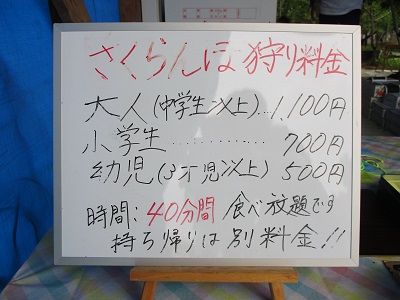 さくらんぼ狩り料金
大人(中学生以上)...1,100円
小学生..............700円
幼児(3才児以上)500円
時間:40分間 食べ放題です
持ち帰りは別料金!!